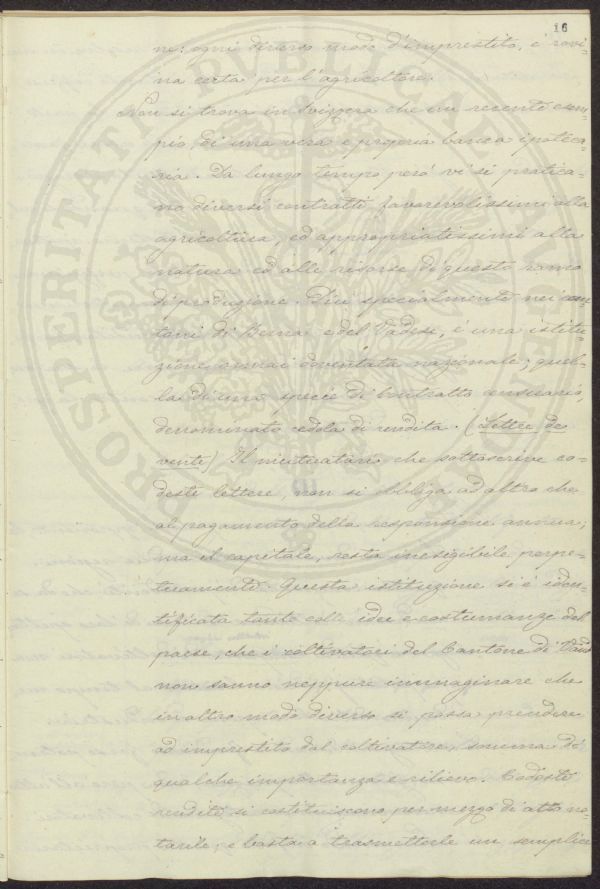 16
ne: ogni diverso modo d'imprestito, è rovi-
na certa per l'agricoltore.
Non si trova in Svizzera che un recente esem-
pio, di una vera e propria banca ipoteca-
ria. Da lungo tempo però vi si pratica-
no diversi contratti favorevolissimi alla
agricoltura, ed appropriatissimi alla
natura ed alle risorse di questo ramo
di produzione. Quì specialmente nei can-
toni di Berna e del Vadese, è una istitu-
zione omai doventata nazionale; quel-
la di una specie di contratto censuario,
denominato cedola di rendita. (Lettre de
rente) Il mutuatario che sottoscrive co-
deste lettere, non si obbliga ad altro che
al pagamento della responsione annua;
ma il capitale, resta inesigibile perpe-
tuamente. Questa istituzione si è iden-
tificata tanto colle idee e costumanze del
paese, che i coltivatori del Cantone di Vaud
non sanno neppure immaginare che
in altro modo diverso si possa prendere
ad imprestito dal coltivatore, somma di
qualche importanza e rilievo. Codeste
rendite, si costituiscono per mezzo di atto no-
tarile; e basta a trasmetterle un semplice
PROSPERITATI PUBLICAE AUGENDAE